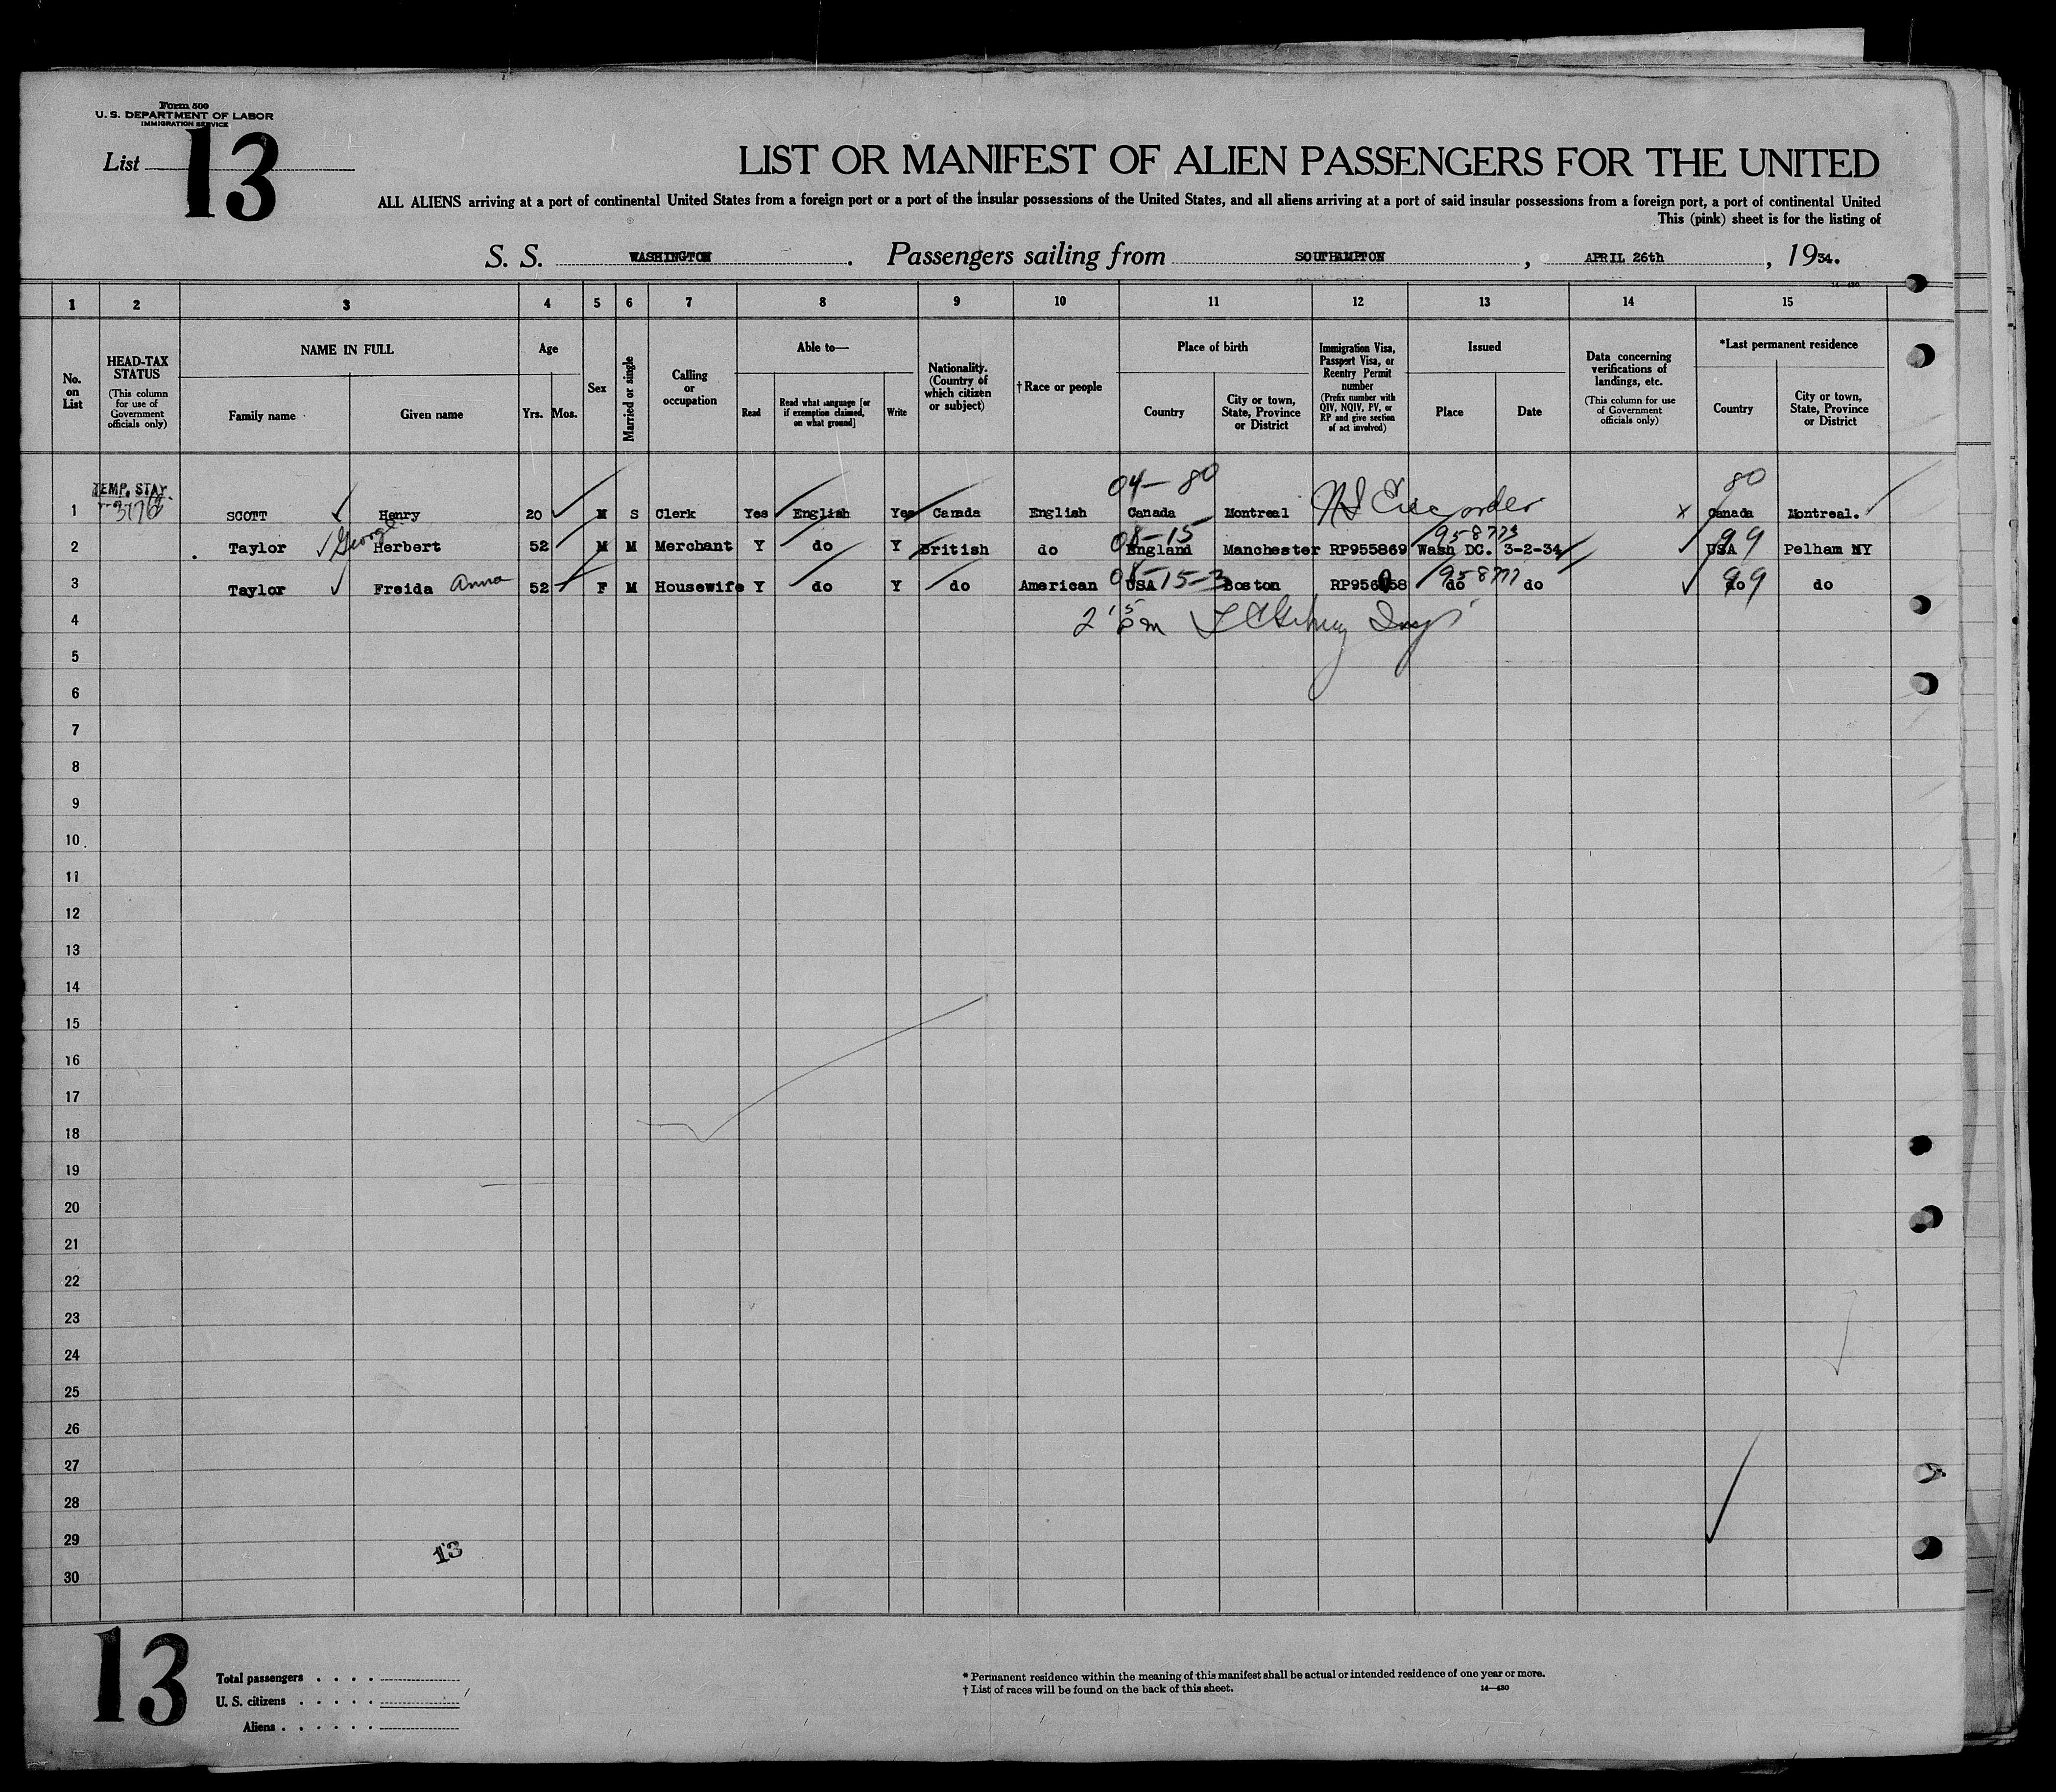 Form 500
U. S. DEPARTMENT OF LABOR
IMMIGRATION SERVICE
List 13
LIST OR MANIFEST OF ALIEN PASSENGERS FOR THE UNITED
ALL ALIENS arriving at a port of continental United States from a foreign port or a port of the insular possessions of the United States, and all aliens arriving at a port of said insular possessions from a foreign port, a port of continental United
This (pink) sheet is for the listing of
S. S. WASHINGTON. Passengers sailing from SOUTHAMPTON, APRIL 26th, 1934.
14-430
1 2 3 4 5 6 7 8 9 10 11 12 13 14 15
No. on List
HEAD-TAX STATUS (This column for use of Government officials only)
NAME IN FULL
Family name Given name
Age
Yrs. Mos.
Sex
Married or single
Calling or occupation
Able to—
Read
Read what language [or if exemption claimed, on what ground]
Write
Nationality. (Country of which citizen or subject)
†Race or people
Place of birth
Country
City or town, State, Province or District
Immigration Visa, Passport Visa, or Reentry Permit number (Prefix number with QIV, NQIV, PV, or RP and give section of act involved)
Issued
Place Date
Data concerning verifications of landings, etc. (This column for use of Government officials only)
*Last permanent residence
Country
City or town, State, Province or District
04-80 80
TEMP. STAY.
1 SCOTT Henry 20 M S Clerk Yes English Yes Canada English Canada Montreal x Canada Montreal.
George 05-15 958773 99
2 Taylor Herbert 52 M M Merchant Y do Y British do England Manchester RP955869 Wash DC. 3-2-34 USA Pelham NY
05-15-3 958777 99
3 Taylor Freida Anna 52 F M Housewife Y do Y do American USA Boston do do do do
4 2 15 pm
5
6
7
8
9
10
11
12
13
14
15
16
17
18
19
20
21
22
23
24
25
26
27
28
29
13
30
13
Total passengers
U. S. citizens
Aliens
* Permanent residence within the meaning of this manifest shall be actual or intended residence of one year or more.
† List of races will be found on the back of this sheet. 14-430